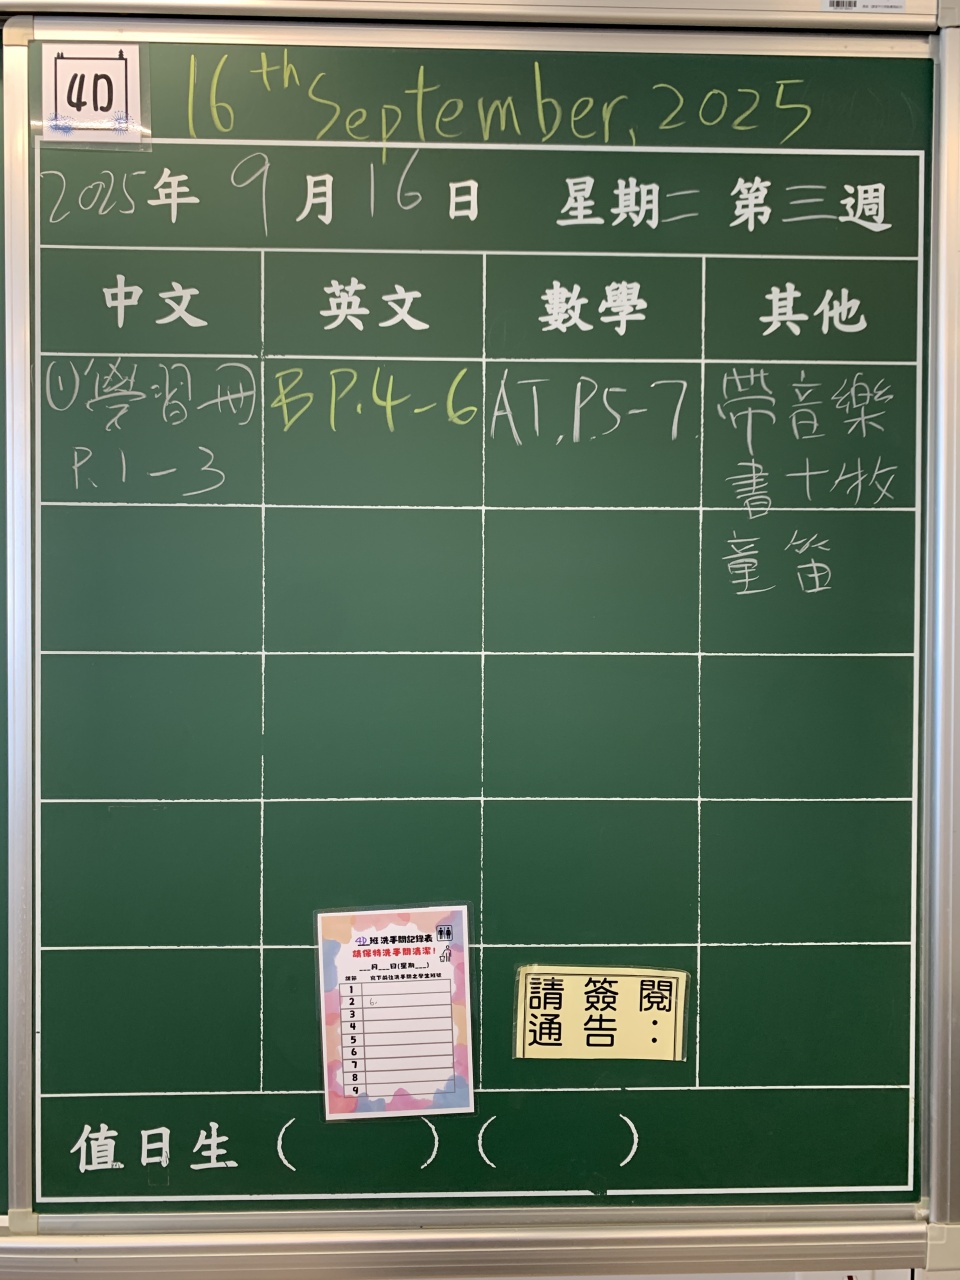 4D
16th September, 2025
2025年 9月 16日 星期二 第三週
中文 英文 數學 其他
①學習冊 P.1-3
B P.4-6
AT, P.5-7
帶音樂
書十牧
童笛
4D班洗手間記錄表
請保持洗手間清潔!
___月___日(星期___)
課節
1
2 6.
3
4
5
6
7
8
9
請簽閱
通告:
值日生 ( ) ( )